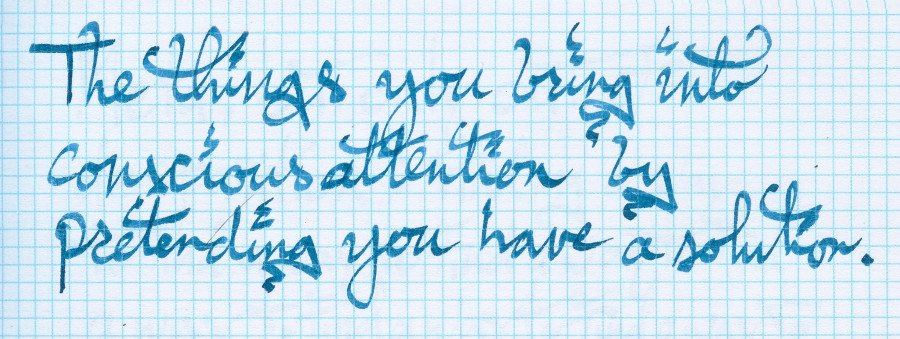 The things you bring into
conscious attention by
pretending you have a solution.